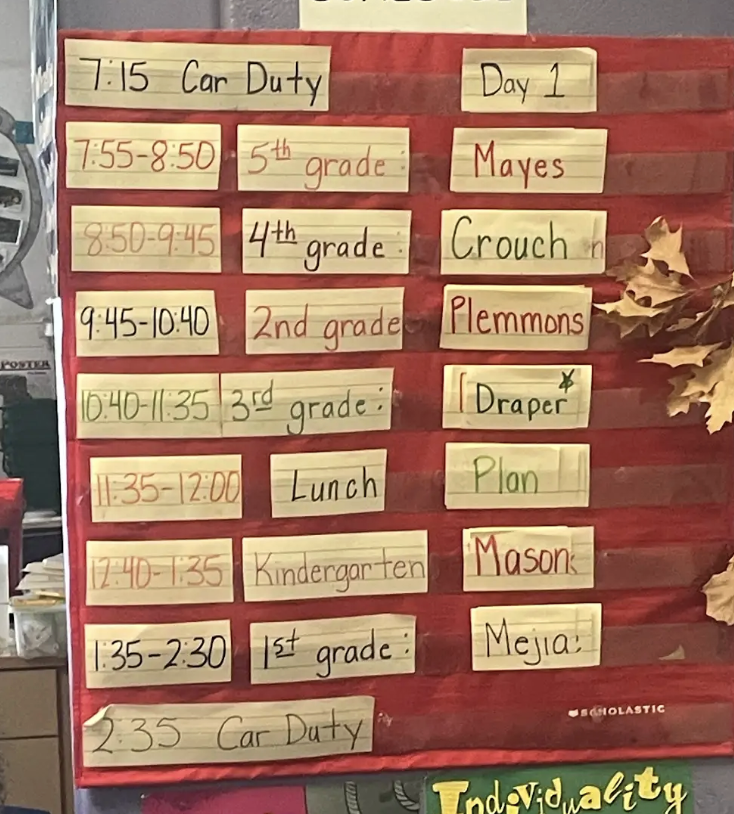 7:15 Car Duty Day 1
7:55-8:50 5th grade: Mayes
8:50-9:45 4th grade: Crouch
9:45-10:40 2nd grade Plemmons
10:40-11:35 3rd grade: Draper*
11:35-12:00 Lunch Plan
12:40-1:35 Kindergarten Mason
1:35-2:30 1st grade: Mejia:
2:35 Car Duty
SCHOLASTIC
POSTER
Individuality